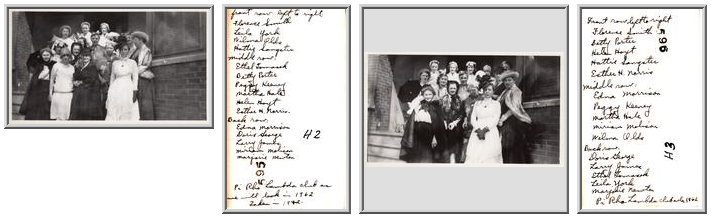 front row left to right
Florence Smith
Leila York
Wilma Olds
Hattie Songster
middle row:
Ethel Tomasek
Betty Porter
Peggy Keeney
Martha Hale
Helen Hoyt
Esther H. Norris
Back row,
Edna Morrison
Doris George
Larry James
miriam Molison
marjorie newton
H2
95
Pi Rho Lambda club as
we will look in 1962
Taken in 1942
Front row left to right
Florence Smith
Betty Porter
Helen Hoyt
Hattie Songster
Esther H. Norris
middle row.
Edna Morrison
Peggy Keeney
Martha Hale
Miriam Molison
Wilma Olds
Back row,
Doris George
Larry James
Ethel Tomasek
Leila York
Marjorie Newton
Pi Rho Lambda club 1962
596
H3